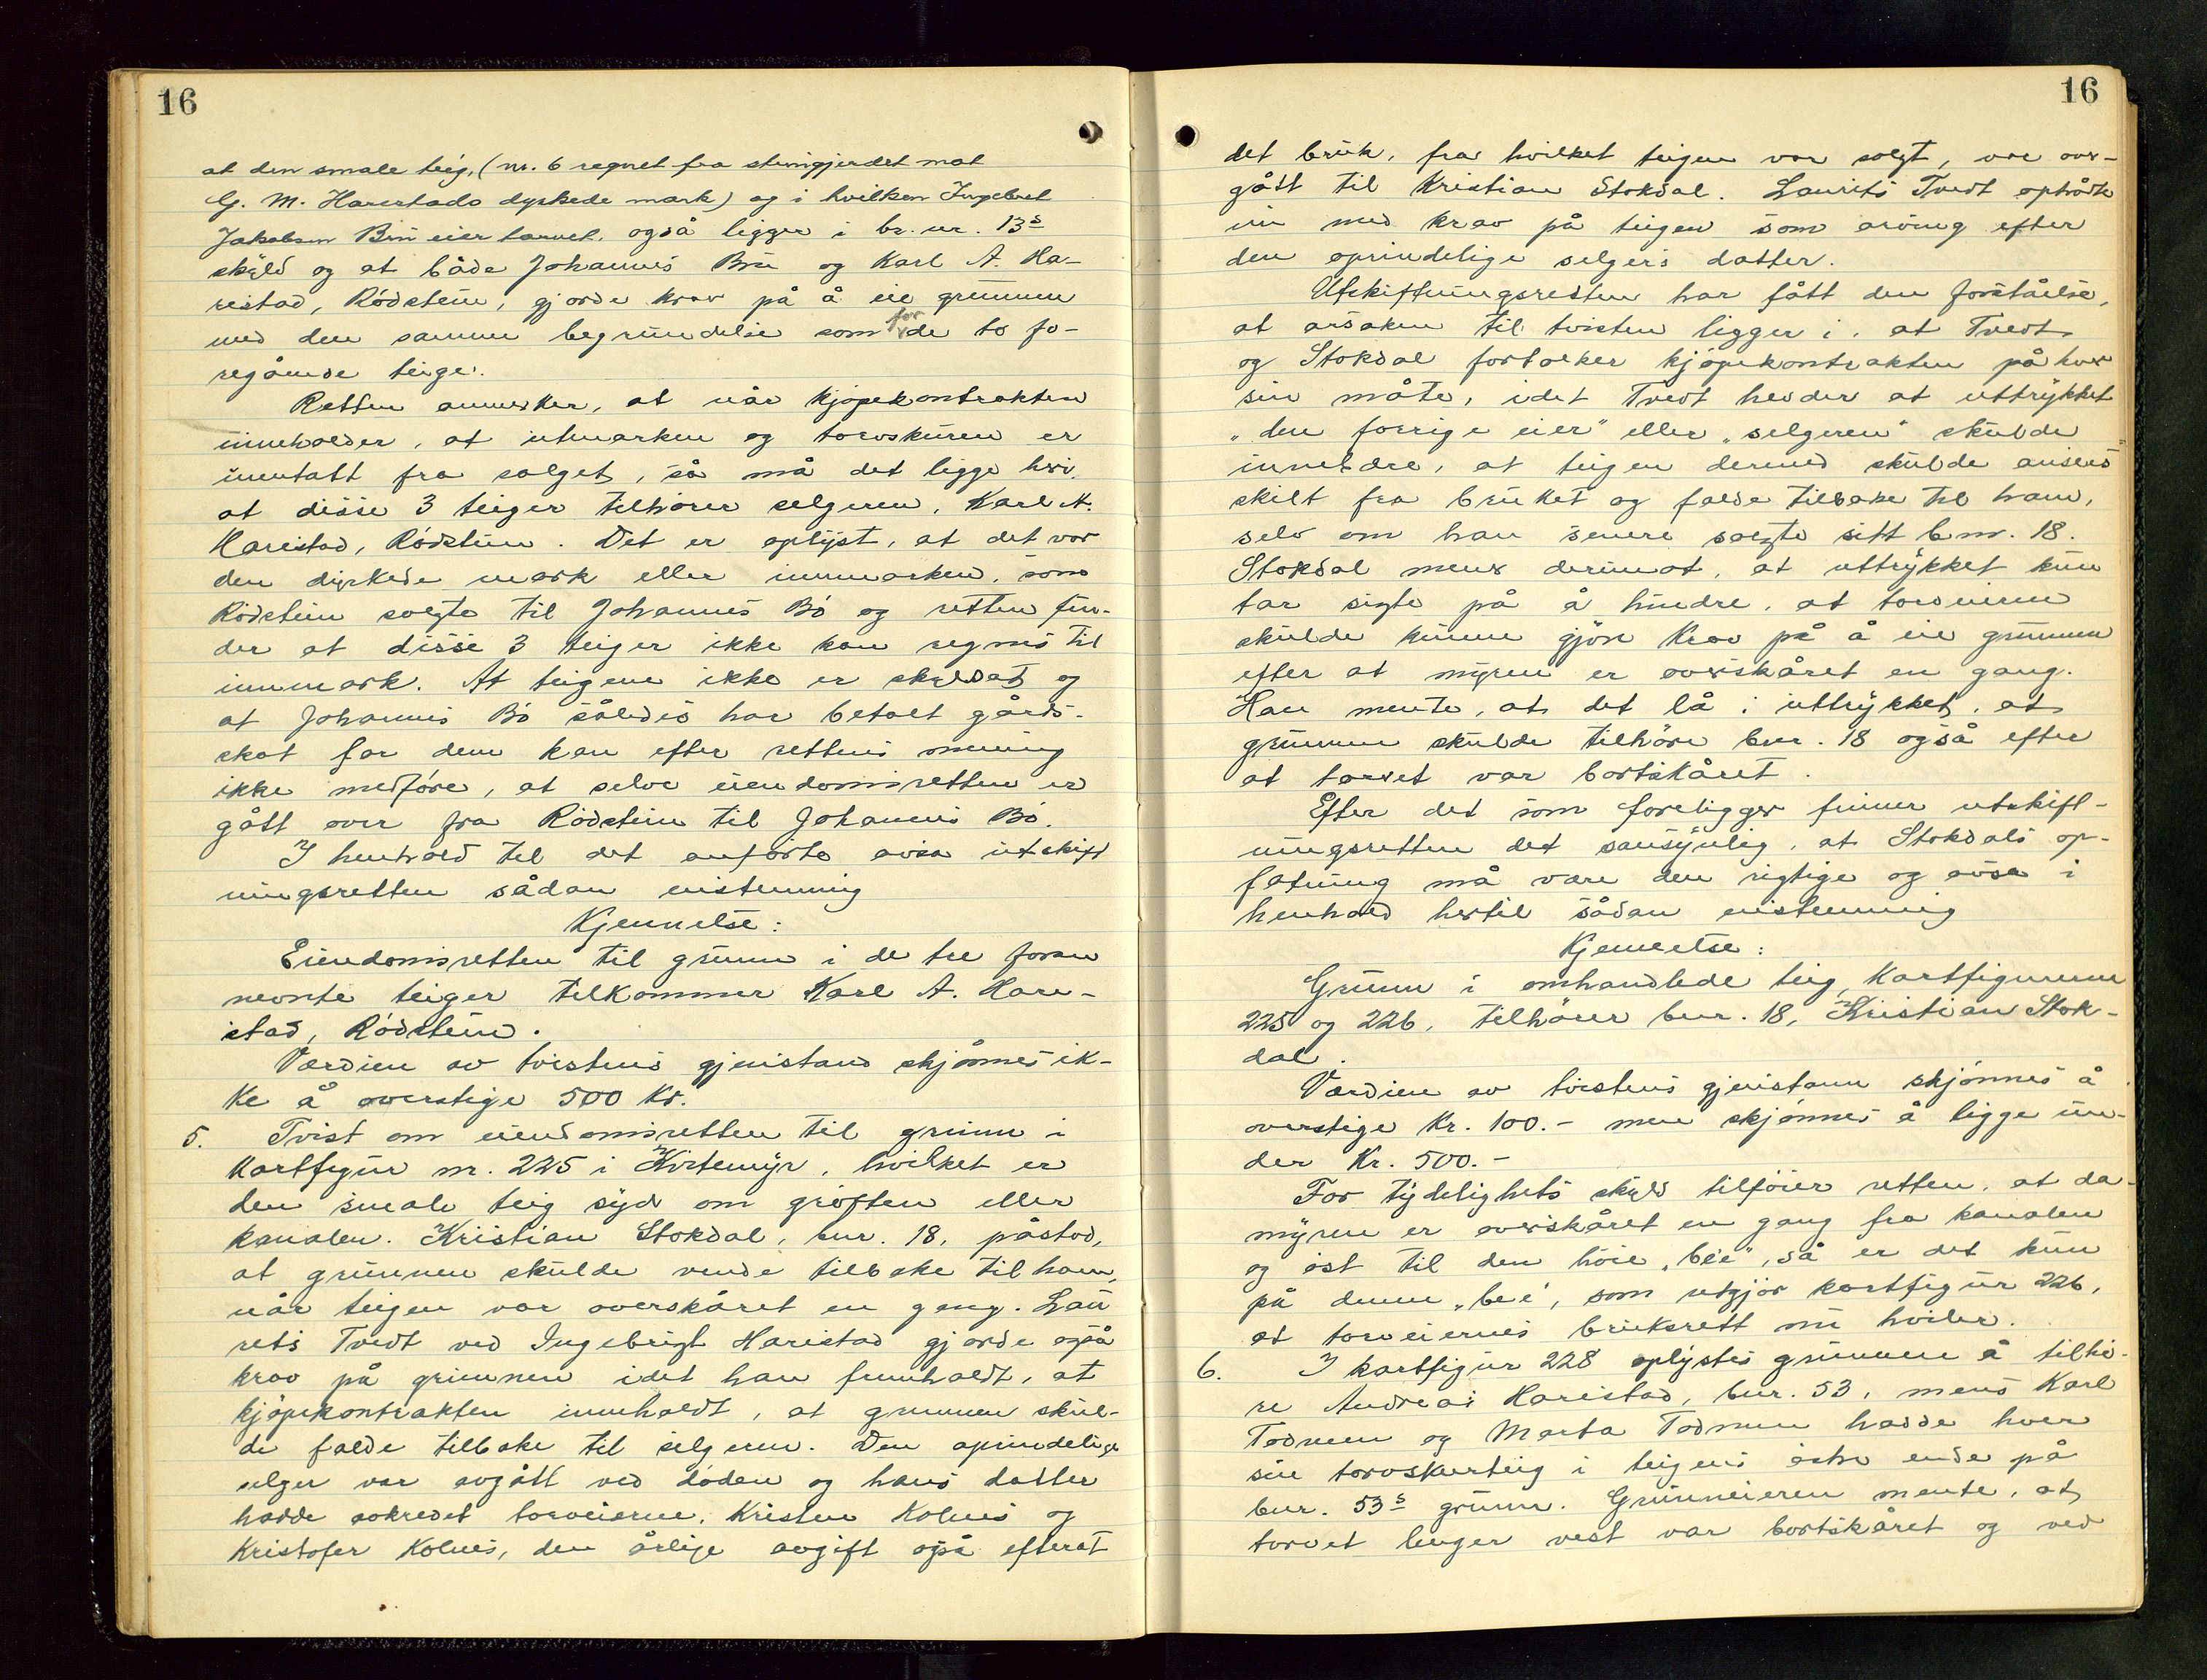 16
at den smale teig, (nr. 6 regnet fra steingjerdet mot
G. M. Harestads dyrkede mark) og i hvilken Ingebret
Jakobsen Bø eier torvet, også ligger i br. nr. 13s
skyld og at både Johannes Bø og Karl A. Ha-
restad, Rödstein, gjorde krav på å eie grunnen
med den samme begrundelse som for de to fo-
regående teiger.
Retten anmerker, at når kjöpekontrakten
inneholder, at utmarken og torvskuren er
unntatt fra salget, så må det ligge heri,
at disse 3 teiger tilhörer selgeren, Karl A.
Harestad, Rödstein. Det er oplyst, at det var
den dyrkede mark eller innmarken, som
Rödstein solgte til Johannes Bö og retten fin-
der at disse 3 teiger ikke kan regnes til
innmark. At teigene ikke er skyldsat og
at Johannes Bö således har betalt gårds-
skat for dem kan efter rettens mening
ikke medföre, at selve eiendomsretten er
gått over fra Rödstein til Johannes Bö.
I henhold til det anförte avsa utskift
ningsretten sådan enstemmig
Kjennelse:
Eiendomsretten til grunn i de tre foran
nevnte teiger tilkommer Karl A. Hare-
stad, Rödstein.
Verdien av tvistens gjenstand skjönnes ik-
ke å overstige 500 Kr.
5. Tvist om eiendomsretten til grunn i
Kartfigur nr. 225 i Kirtemyr, hvilket er
den smale teig syd om gröften eller
kanalen. Kristian Stokdal, bnr. 18, påstod,
at grunnen skulde vende tilbake til ham,
når teigen var overskåret en gang. Lau
rets Tvedt ved Ingebrigt Harestad gjorde også
krav på grunnen idet han fremholdt, at
kjöpekontrakten inneholdt, at grunnen skul-
de falde tilbake til selgeren. Den oprindelige
selger var avgått ved döden og hans datter
hadde avkredet torveierne, Kristen Kolnes og
Kristofer Kolnes, den årlige avgift også efterat
16
det bruk, fra hvilket teigen var solgt, var over-
gått til Kristian Stokdal. Laurits Tvedt optrådte
nu med krav på teigen som arving efter
den oprindelige selgers datter.
Utskiftningsretten har fått den forståelse,
at årsaken til tvisten ligger i, at Tvedt
og Stokdal fortolker kjöpekontrakten på hver
sin måte, idet Tvedt hevder at uttrykket
"den forrige eier" eller "selgeren" skulde
innebære, at teigen dermed skulde ansees
skilt fra bruket og falde tilbake til ham,
selv om han senere solgte sitt bnr. 18.
Stokdal mener derimot, at uttrykket kun
tar sigte på å hindre, at torveieren
skulde kunne gjöre krav på å eie grunnen
efter at myren er overskåret en gang.
Han mente, at det lå i uttrykket, at
grunnen skulde tilhöre bnr. 18 også efter
at torvet var bortskåret.
Efter det som foreligger finner utskift-
ningsretten det sansynlig, at Stokdals op-
fatning må være den rigtige og avsa i
henhold hertil sådan enstemmig
Kjennelse:
Grunn i omhandlede teig, Kartfigurene
225 og 226, tilhörer bnr. 18, Kristian Stok-
dal.
Verdien av tvistens gjenstann skjönnes å
overstige Kr. 100.- men skjönnes å ligge un-
der Kr. 500.-
For tydelighets skyld tilföier retten, at da
myren er overskåret en gang fra kanalen
og öst til den höie "bee", så er det kun
på denne "bee", som utgjör kartfigur 226,
at torveiernes bruksrett nu hviler.
6. I kartfigur 228 oplystes grunnen å tilhö-
re Andreas Harestad, bnr. 53, mens Karl
Todnem og Marta Todnem hadde hver
sin torvskurteig i teigens östre ende på
bnr. 53s grunn. Grunneieren mente, at
torvet lenger vest var bortskåret og ved